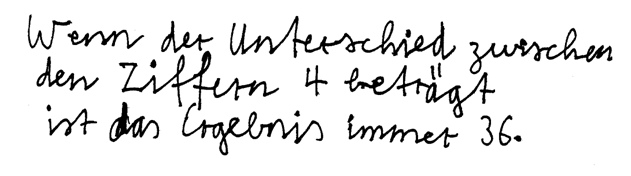 Wenn der Unterschied zwischen
den Ziffern 4 beträgt
ist das Ergebnis immer 36.